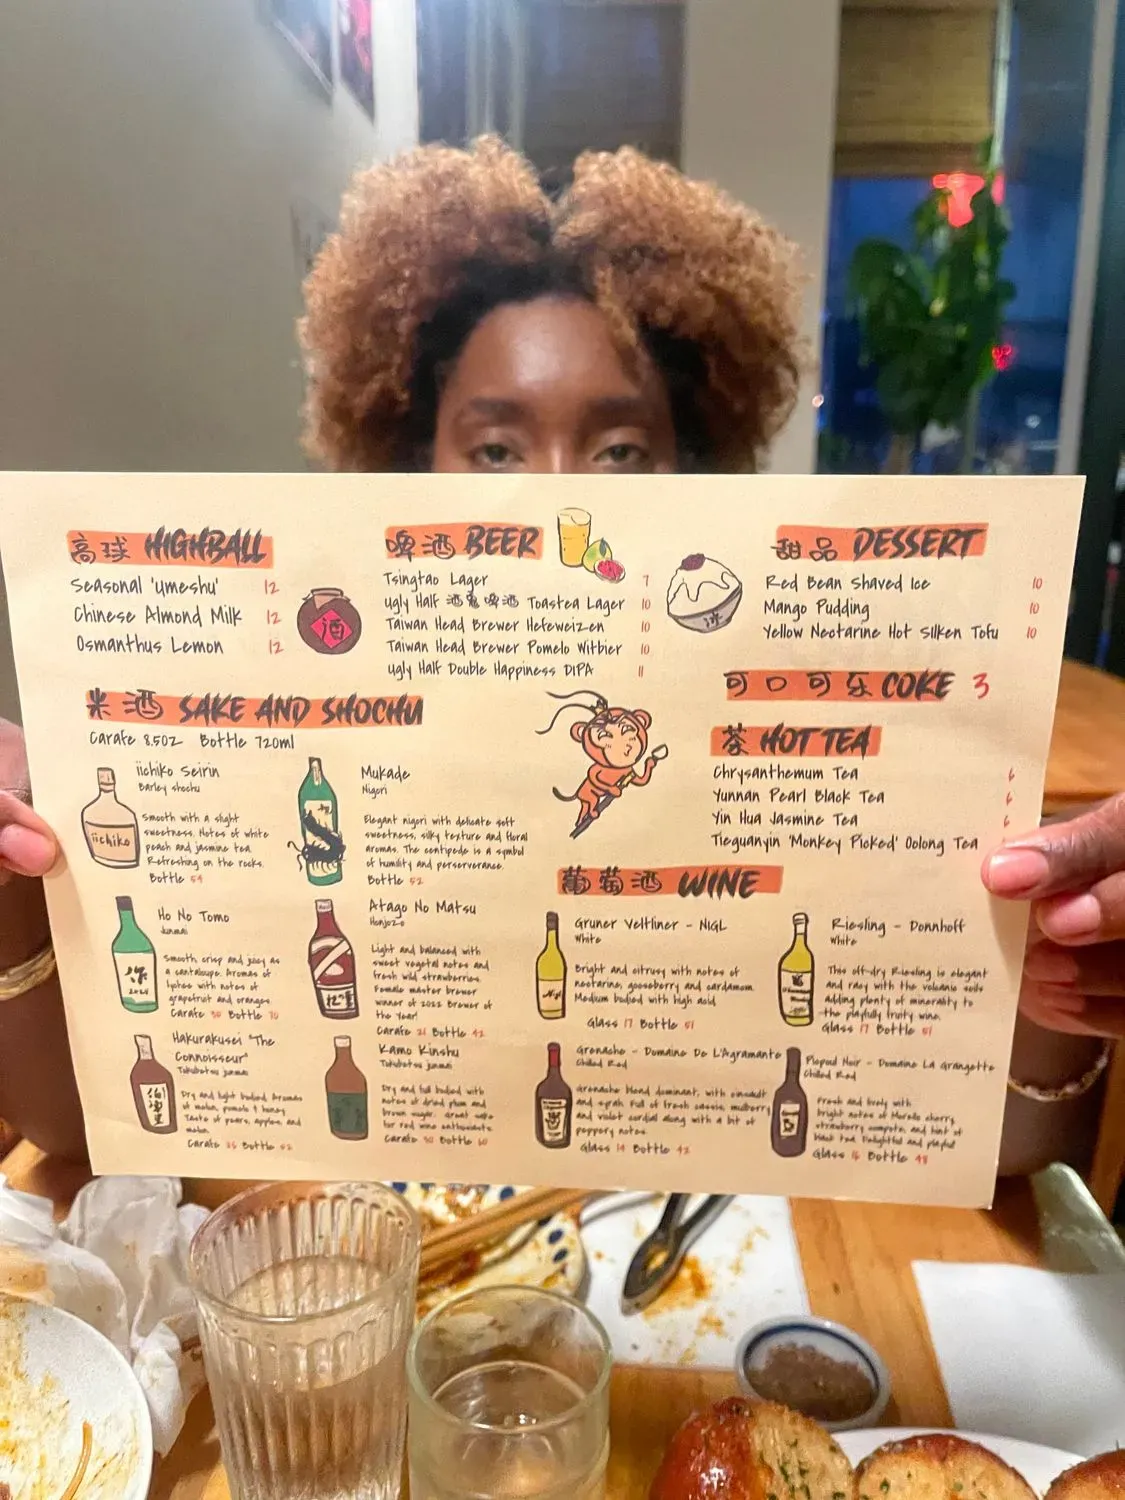 高球 HIGHBALL
Seasonal 'umeshu' 12
Chinese Almond Milk 12
Osmanthus Lemon 12
酒
啤酒 BEER
Tsingtao Lager 7
Ugly Half 酒鬼啤酒 Toasted Lager 10
Taiwan Head Brewer Hefeweizen 10
Taiwan Head Brewer Pomelo Witbier 10
Ugly Half Double Happiness DIPA 11
甜品 DESSERT
Red Bean Shaved Ice 10
Mango Pudding 10
Yellow Nectarine Hot Silken Tofu 10
冰
可口可乐 COKE 3
茶 HOT TEA
Chrysanthemum Tea 6
Yunnan Pearl Black Tea 6
Yin Hua Jasmine Tea 6
Tieguanyin 'Monkey Picked' Oolong Tea
米酒 SAKE AND SHOCHU
Carafe 8.5oz Bottle 720ml
iichiko Seirin
Barley shochu
Smooth with a slight
sweetness. Notes of white
peach and jasmine tea.
Refreshing on the rocks.
Bottle 54
iichiko
Mukade
Nigori
Elegant nigori with delicate soft
sweetness, silky texture and floral
aromas. The centipede is a symbol
of humility and perserverance.
Bottle 52
Ho No Tomo
Junmai
Smooth, crisp and juicy as
a cantaloupe. Aromas of
lychee with notes of
grapefruit and oranges
Carafe 30 Bottle 70
Atago No Matsu
Honjozo
Light and balanced with
sweet vegetal notes and
fresh wild strawberries.
Female master brewer
winner of 2022 Brewer of
the Year!
Carafe 21 Bottle 42
Hakurakusei "The
Connoisseur"
Tokubetsu junmai
Dry and light bodied. Aromas
of melon, pomelo & honey.
Taste of pears, apples, and
melon.
Carafe 25 Bottle 52
Kamo Kinshu
Tokubetsu junmai
Dry and full bodied with
notes of dried plum and
brown sugar. Great sake
for red wine enthusiasts.
Carafe 30 Bottle 60
葡萄酒 WINE
Gruner Veltliner - NIGL
White
Bright and citrusy with notes of
nectarine, gooseberry and cardamom.
Medium bodied with high acid
Glass 17 Bottle 51
Nigl
Riesling - Donnhoff
White
This off-dry Riesling is elegant
and racy with the volcanic soils
adding plenty of minerality to
the playfully fruity wine.
Glass 17 Bottle 51
Grenache - Domaine De L'Agramante
Chilled Red
Grenache blend dominant, with cinsault
and syrah. Full of fresh cassis, mulberry
and violet cordial along with a bit of
peppery notes.
Glass 14 Bottle 42
Piepoul Noir - Domaine La Grangette
Chilled Red
Fresh and lively with
bright notes of Morello cherry,
strawberry compote, and hint of
black tea. Delightful and playful
Glass 16 Bottle 48